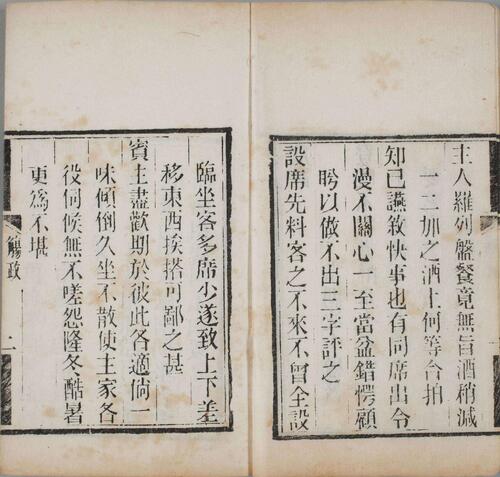 主人羅列盤餐竟無旨酒稍減
一二加之酒上何等合拍
知已讌敘快事也有同席出令
漫不關心一至當盆錯愕顧
盻以做不出三字評之
設席先料客之不來不曾全設
臨坐客多席少遂致上下差
移東西挨搭可鄙之甚
賓主盡歡期於彼此各適倘一
味傾倒久坐不散使主家各
役伺候無不嗟怨隆冬酷暑
更爲不堪
觴政
二